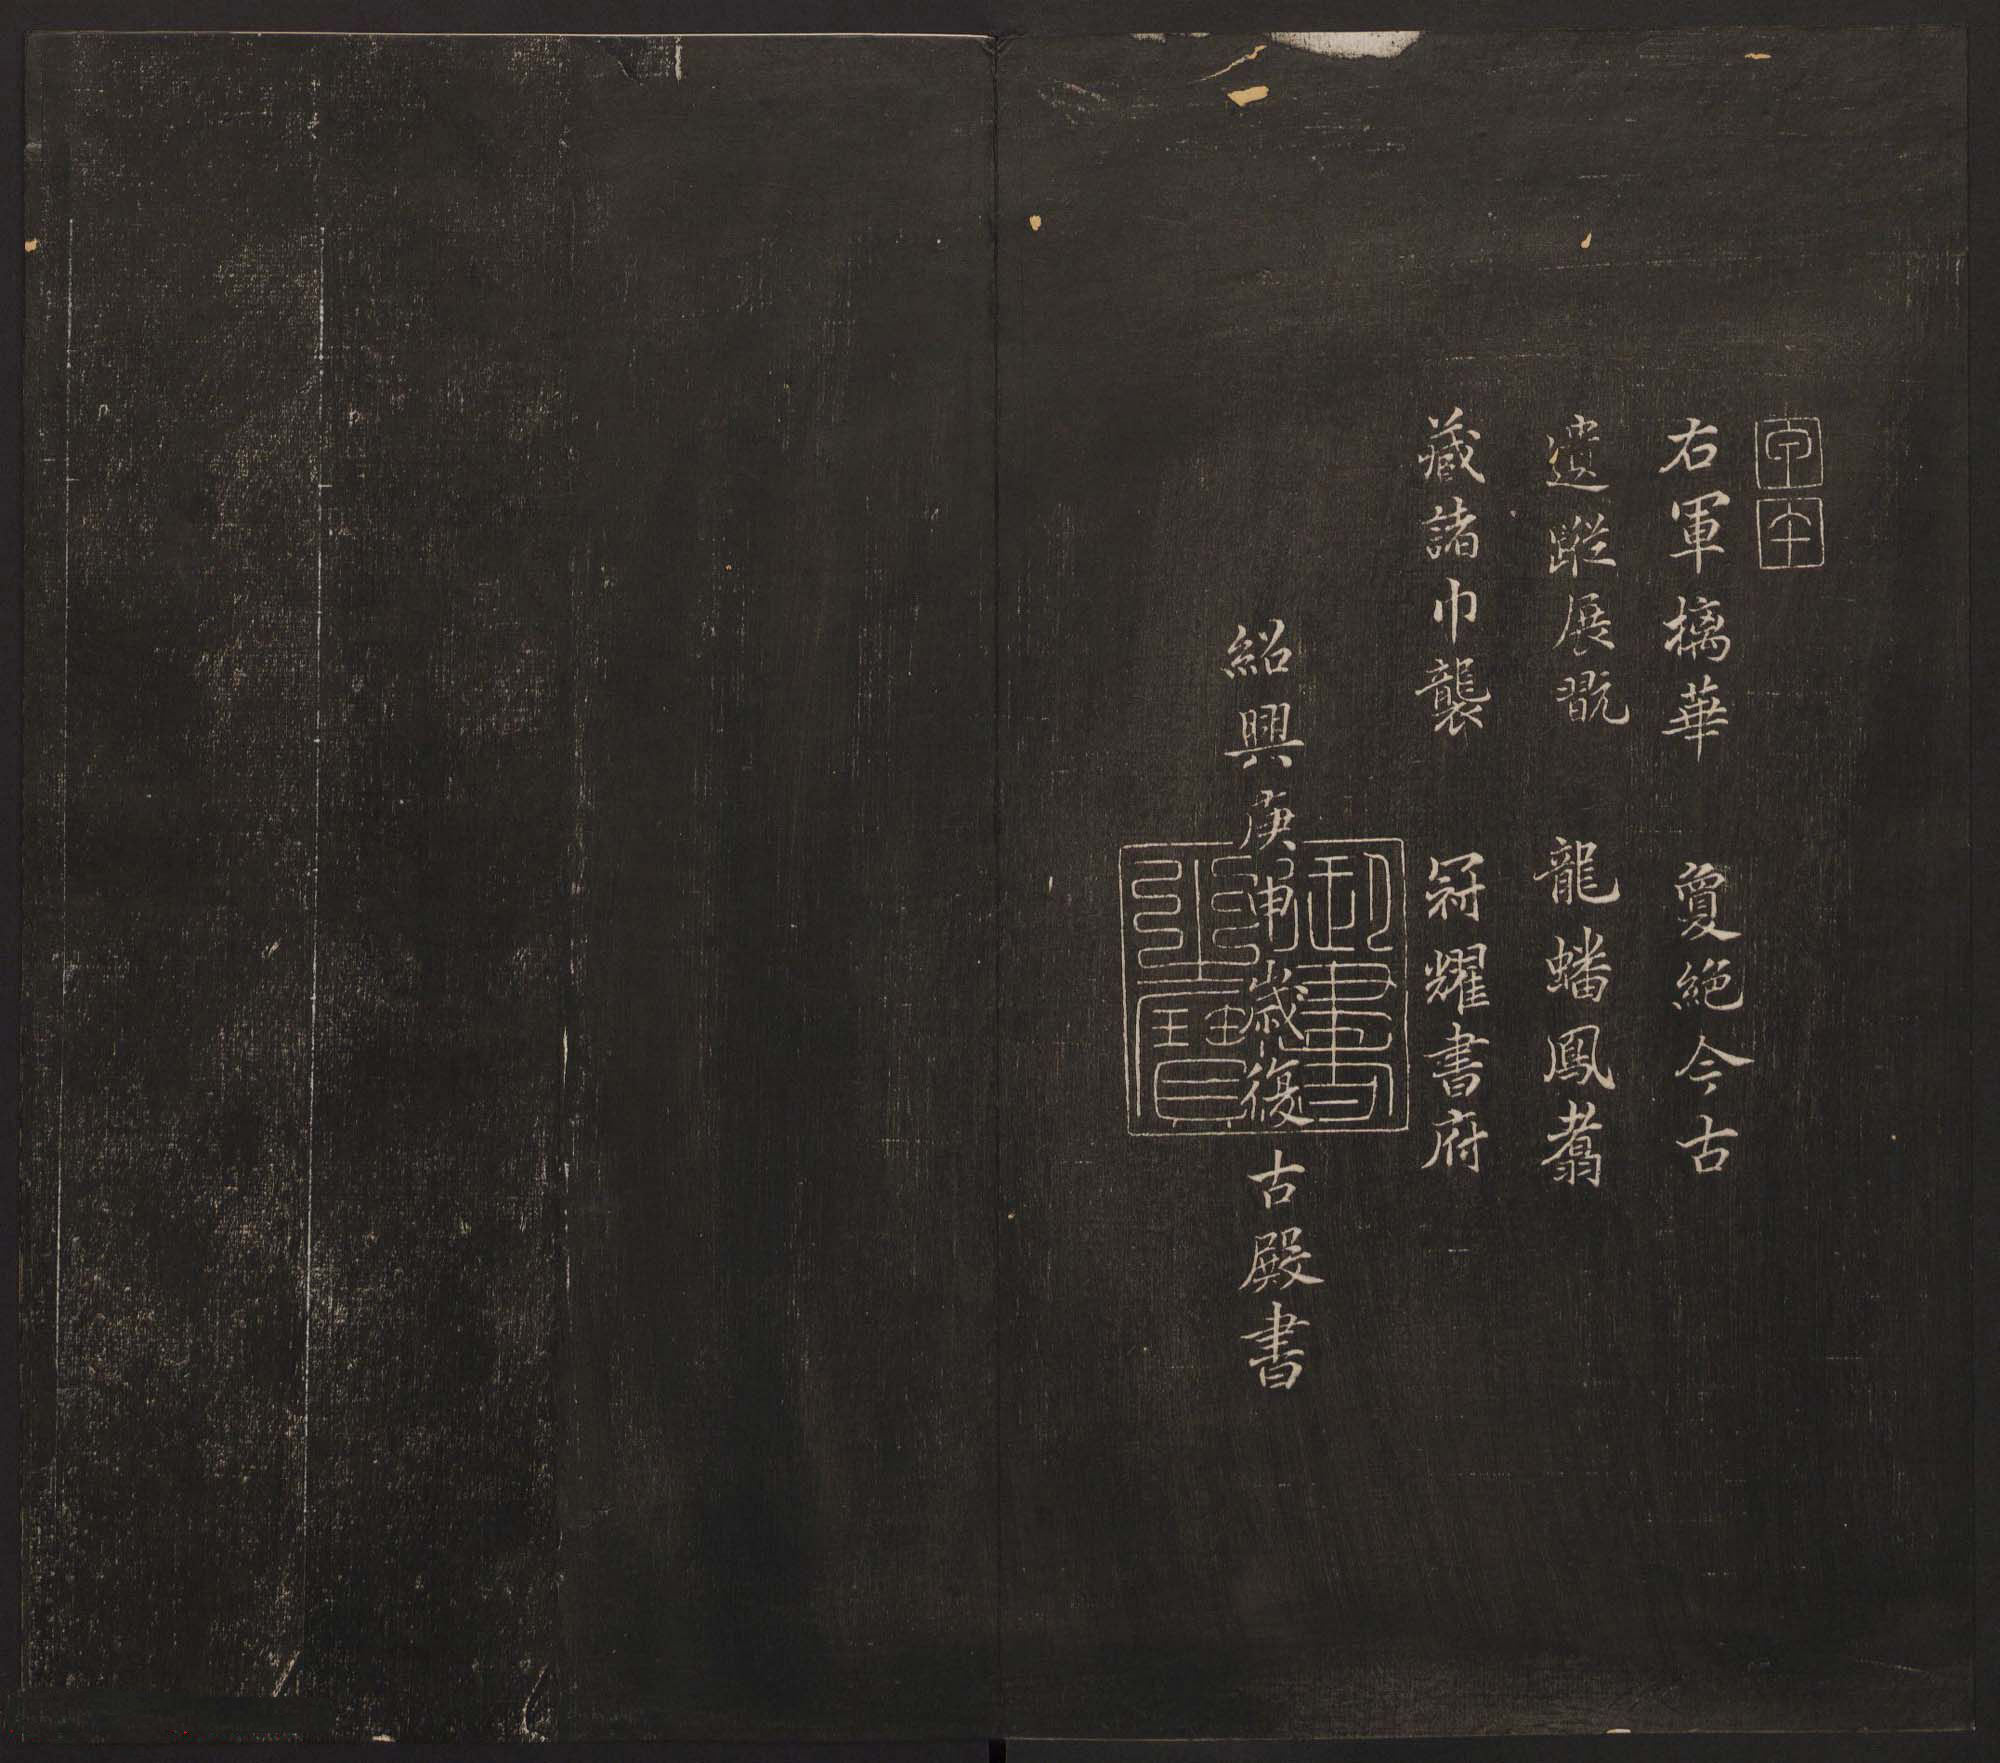 右軍摛華　夐絶今古
遺蹤展翫　龍蟠鳳翥
藏諸巾襲　冠耀書府
紹興庚申歲復古殿書
御書之寶